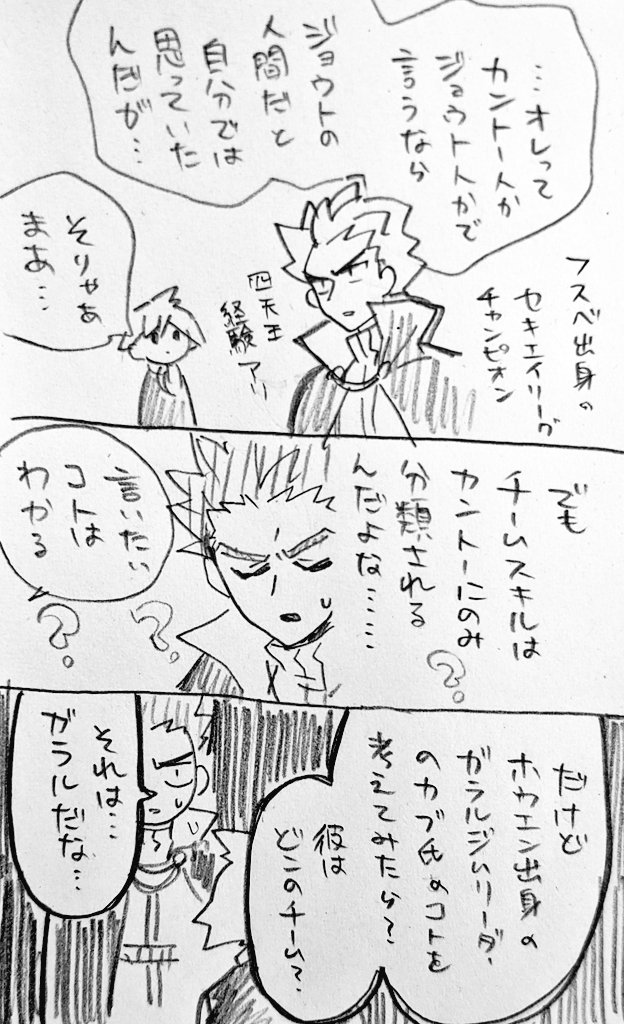 …オレって
カントー人か
ジョウト人かで
言うなら
ジョウトの
人間だと
自分では
思っていた
んだが…
フスベ出身の
セキエイリーグ
チャンピオン
四天王
経験アリ
そりゃあ
まあ…
でも
チームスキルは
カントーにのみ
分類される
んだよな……
言いたい
コトは
わかる
?
?
?
だけど
ホウエン出身の
ガラルジムリーダー
のカブ氏のコトを
考えてみたら?
彼は
どこのチーム?
それは…
ガラルだな…